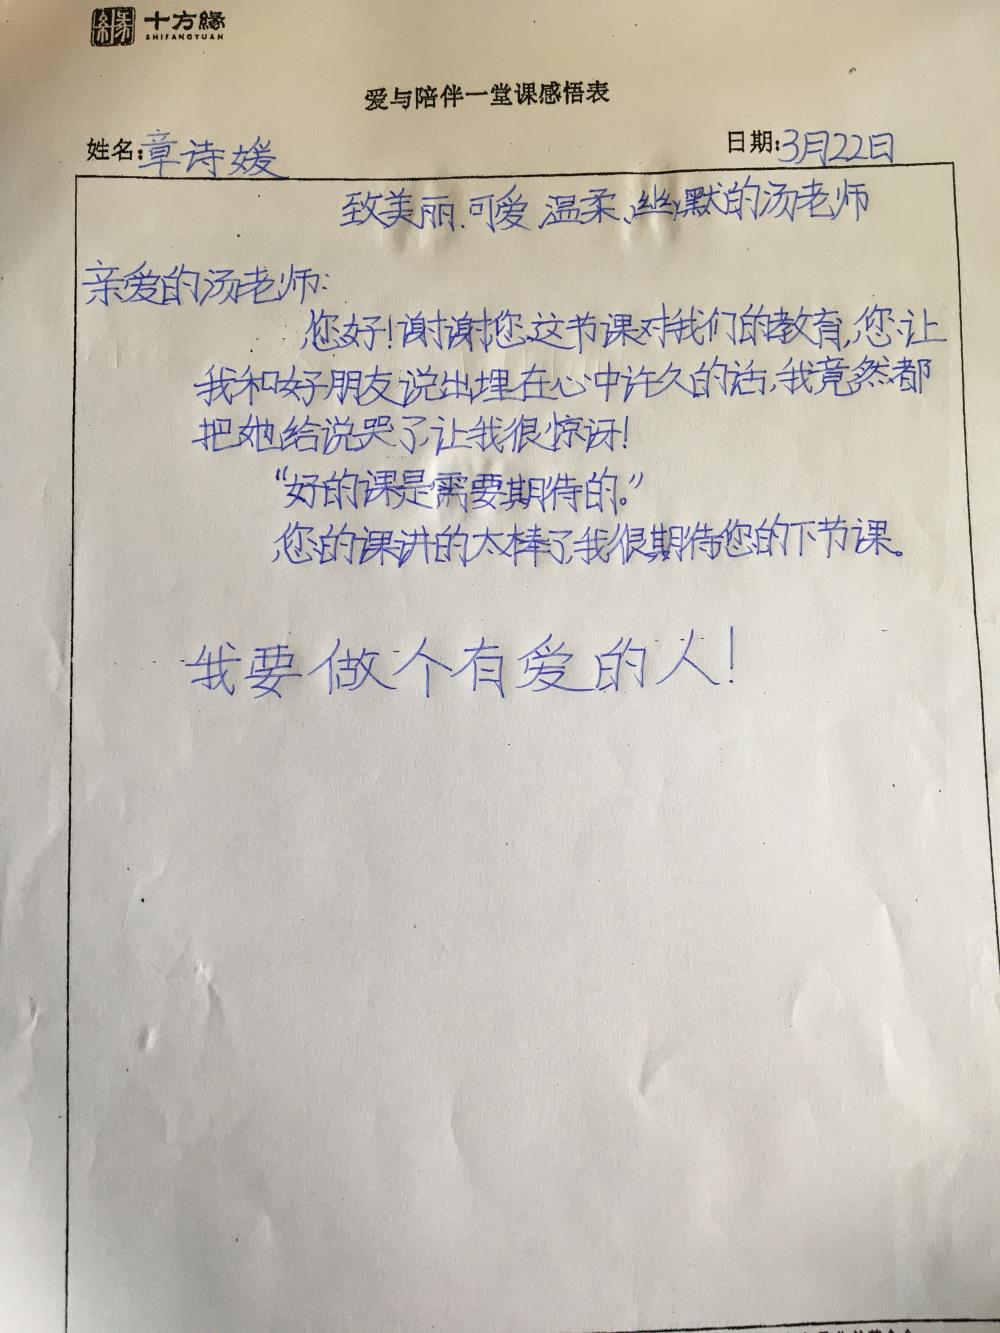 十方緣
SHIFANGYUAN
爱与陪伴一堂课感悟表
姓名:章诗媛 日期:3月22日
致美丽、可爱、温柔、幽默的汤老师
亲爱的汤老师:
您好!谢谢您这节课对我们的教育,您让
我和好朋友说出埋在心中许久的话,我竟然都
把她给说哭了,让我很惊讶!
“好的课是需要期待的。”
您的课讲的太棒了,我很期待您的下节课。
我要做个有爱的人!